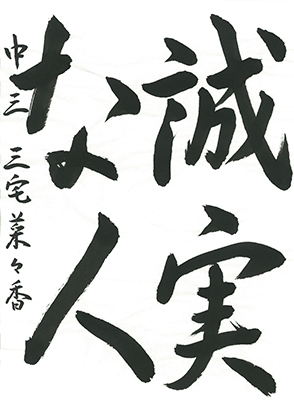 誠実
な人
中三 三宅菜々香